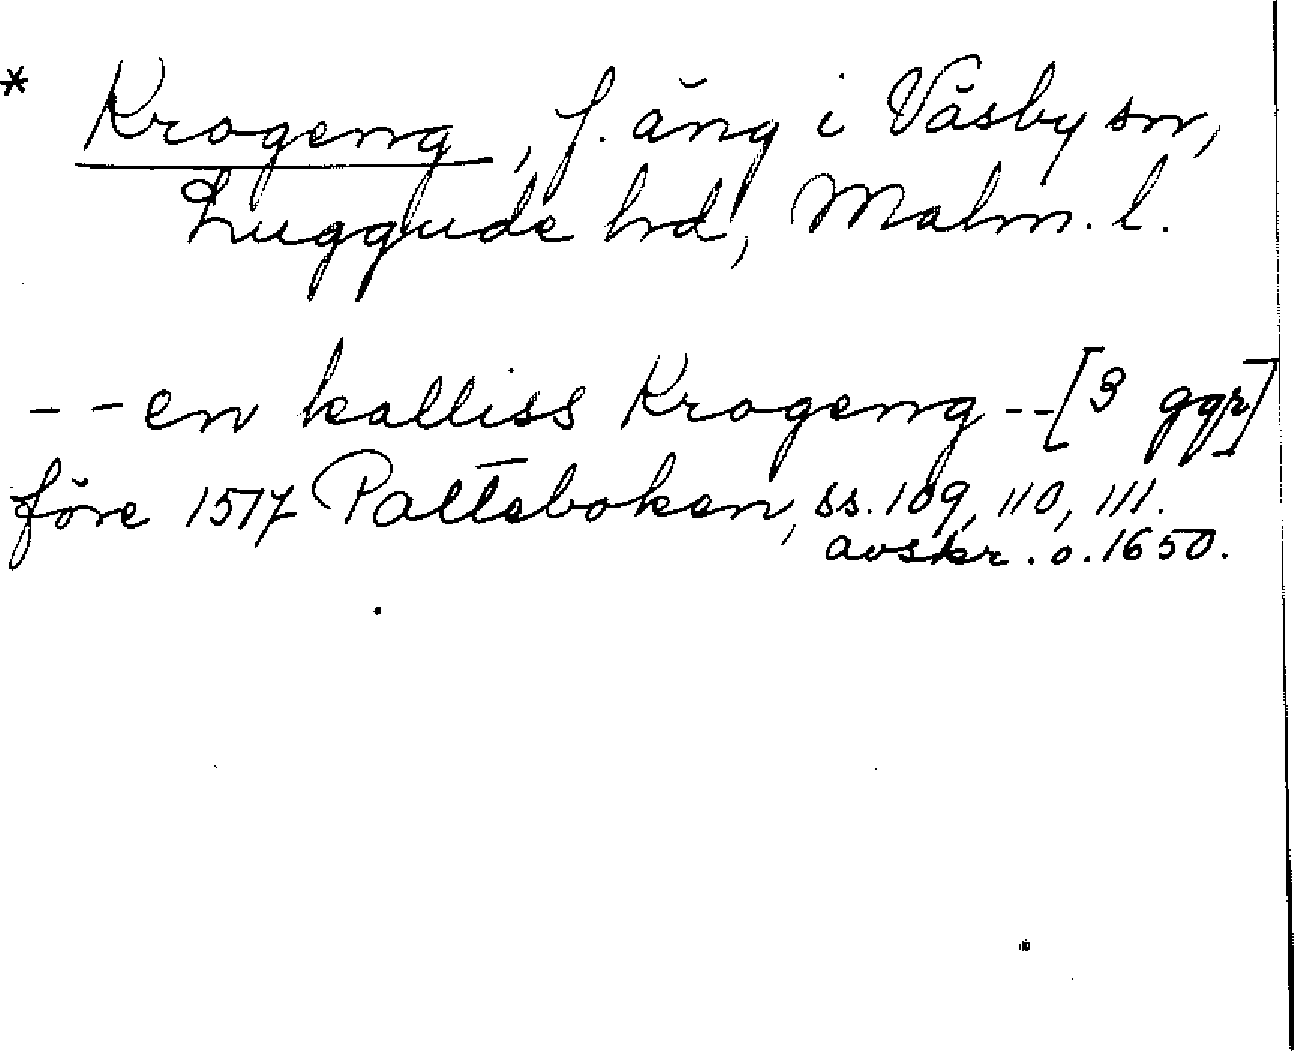 * Krogeng, f. äng i Väsby sn,
Luggude hd, Malm. l.
-- en kalliss Krogeng -- [3 ggr]
före 1517 Palteboken, ss. 109, 110, 111.
avskr. o. 1650.